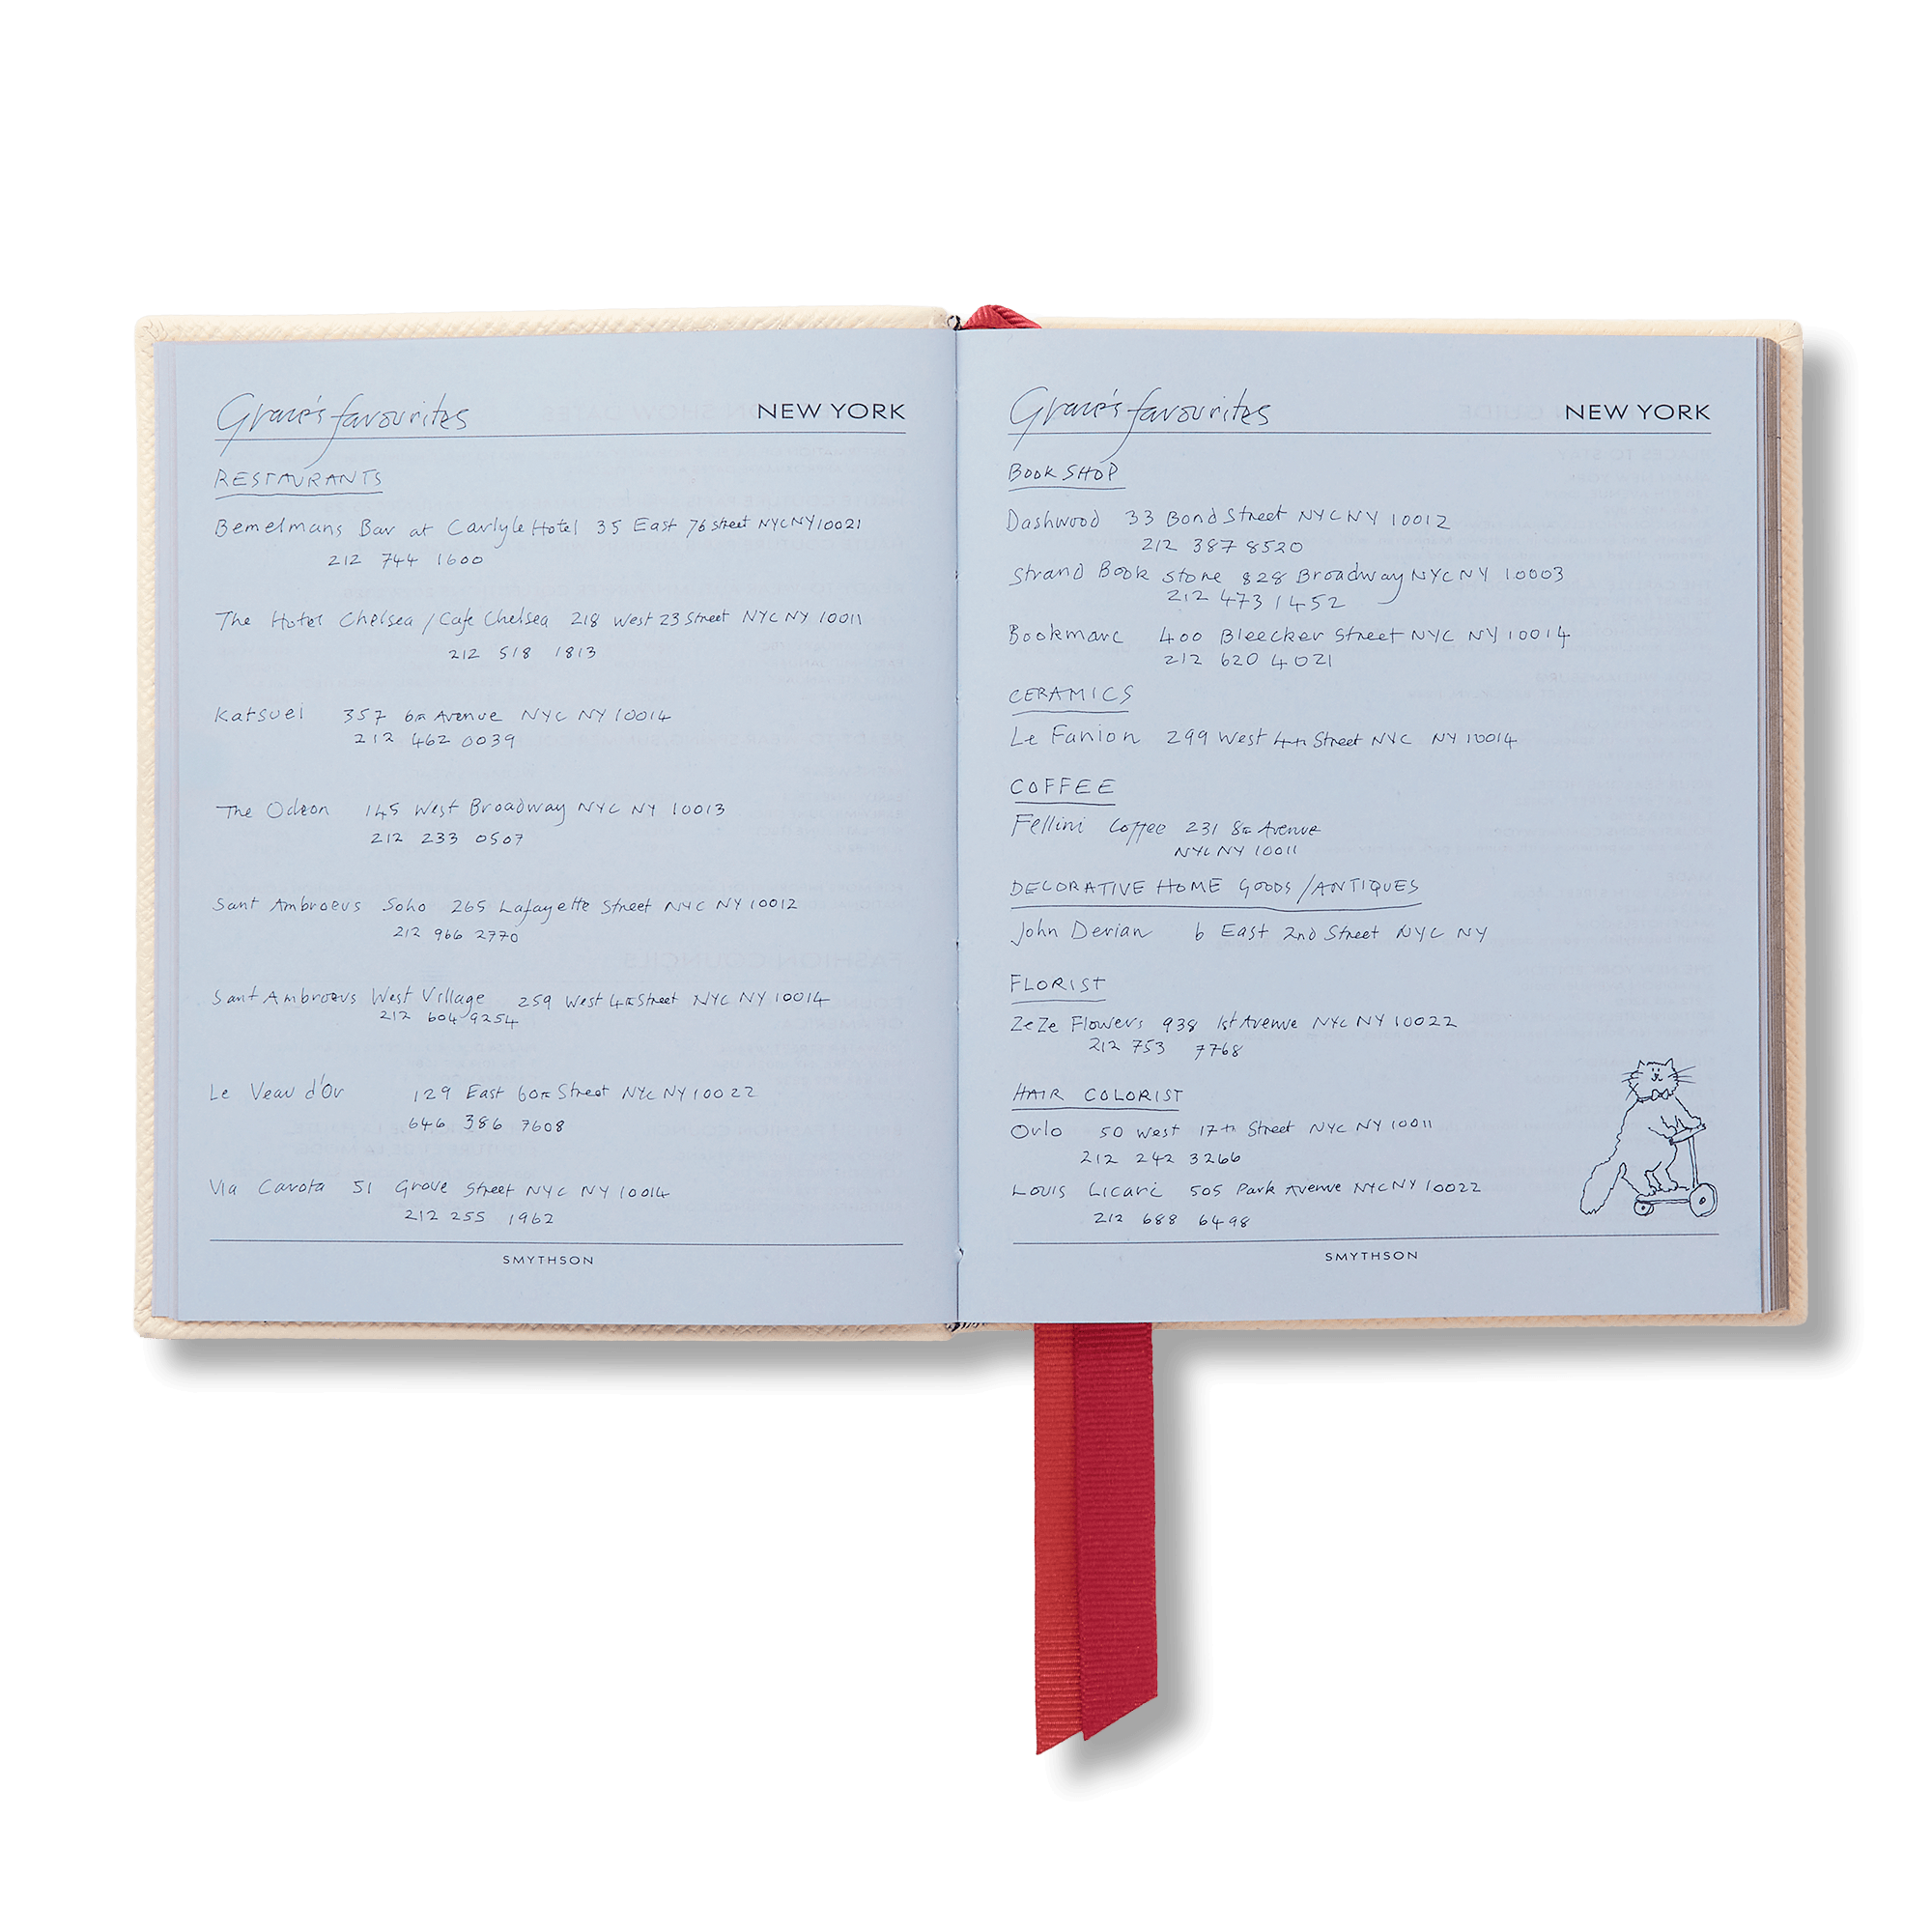 Grace's favourites NEW YORK
RESTAURANTS
Bemelmans Bar at Carlyle Hotel 35 East 76 street NYC NY 10021
212 744 1600
The Hotel Chelsea / Cafe Chelsea 218 West 23 Street NYC NY 10011
212 518 1813
Katsuei 357 6th Avenue NYC NY 10014
212 462 0039
The Odeon 145 West Broadway NYC NY 10013
212 233 0507
Sant Ambroeus Soho 265 Lafayette Street NYC NY 10012
212 966 2770
Sant Ambroeus West Village 259 West 4th Street NYC NY 10014
212 604 9254
Le Veau d'Or 129 East 60th Street NYC NY 10022
646 386 7608
Via Carota 51 Grove Street NYC NY 10014
212 255 1962
SMYTHSON
Grace's favourites NEW YORK
BOOK SHOP
Dashwood 33 Bond Street NYC NY 10012
212 387 8520
Strand Book Store 828 Broadway NYC NY 10003
212 473 1452
Bookmarc 400 Bleecker Street NYC NY 10014
212 620 4021
CERAMICS
Le Fanion 299 West 4th Street NYC NY 10014
COFFEE
Fellini Coffee 231 8th Avenue
NYC NY 10011
DECORATIVE HOME GOODS / ANTIQUES
John Derian 6 East 2nd Street NYC NY
FLORIST
ZeZe Flowers 938 1st Avenue NYC NY 10022
212 753 7768
HAIR COLORIST
Orlo 50 West 17th Street NYC NY 10011
212 242 3266
Louis Licari 505 Park Avenue NYC NY 10022
212 688 6498
SMYTHSON